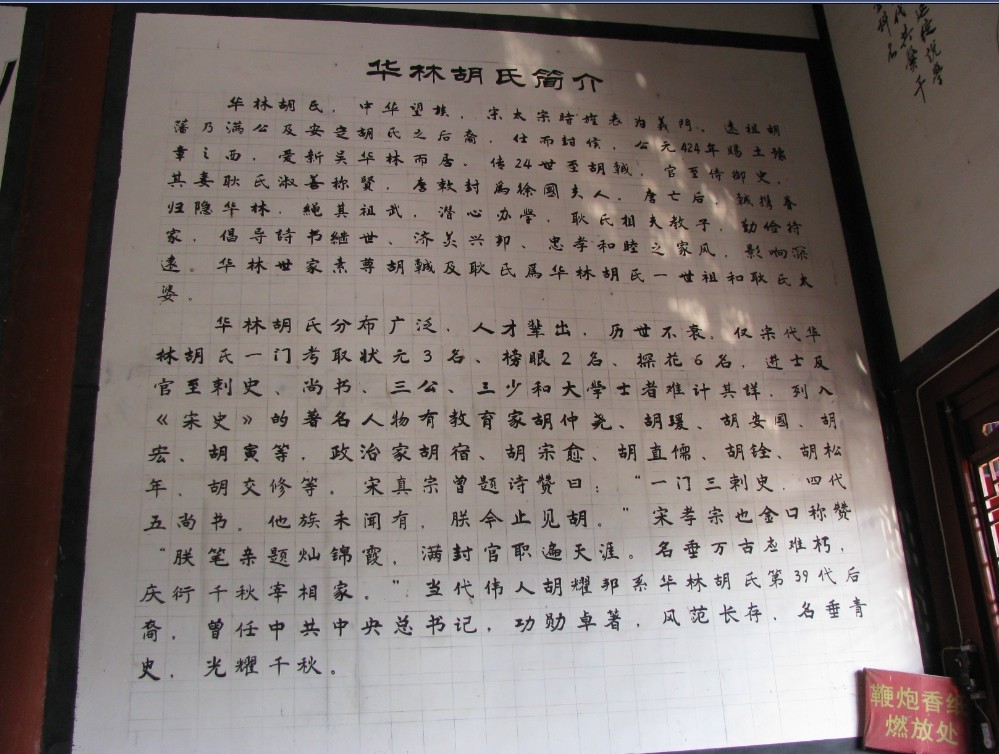 华林胡氏简介
华林胡氏，中华望族，宋太宗時旌表为義門。遠祖胡
藩乃满公及安定胡氏之后裔，仕而封侯，公元424年赐土豫
章之西，爱新吴华林而居，传24世至胡城，官至侍御史，
其妻耿氏淑善称贤，唐敕封為徐國夫人，唐亡后，城携眷
归隐华林，绳其祖武，潜心办學，耿氏相夫教子，勤俭持
家，倡导詩书继世、济美兴邦、忠孝和睦之家风，影响深
遠。华林世家素尊胡城及耿氏爲华林胡氏一世祖和耿氏太
婆。
华林胡氏分布广泛，人才辈出，历世不衰。仅宋代华
林胡氏一门考取状元3名、榜眼2名、探花6名，进士及
官至刺史、尚书、三公、三少和大學士者难计其詳，列入
《宋史》的著名人物有教育家胡仲尧、胡瑗、胡安國、胡
宏、胡寅等，政治家胡宿、胡宗愈、胡直儒、胡铨、胡松
年、胡交修等。宋真宗曾题诗赞曰：“一门三刺史，四代
五尚书。他族未闻有，朕今止见胡。”宋孝宗也金口称赞
“朕笔亲题灿锦霞，满封官职遍天涯。名垂万古应难朽，
庆衍千秋宰相家。”当代伟人胡耀邦系华林胡氏第39代后
裔，曾任中共中央总书记，功勋卓著，风范长存，名垂青
史，光耀千秋。
鞭炮香纸
燃放处